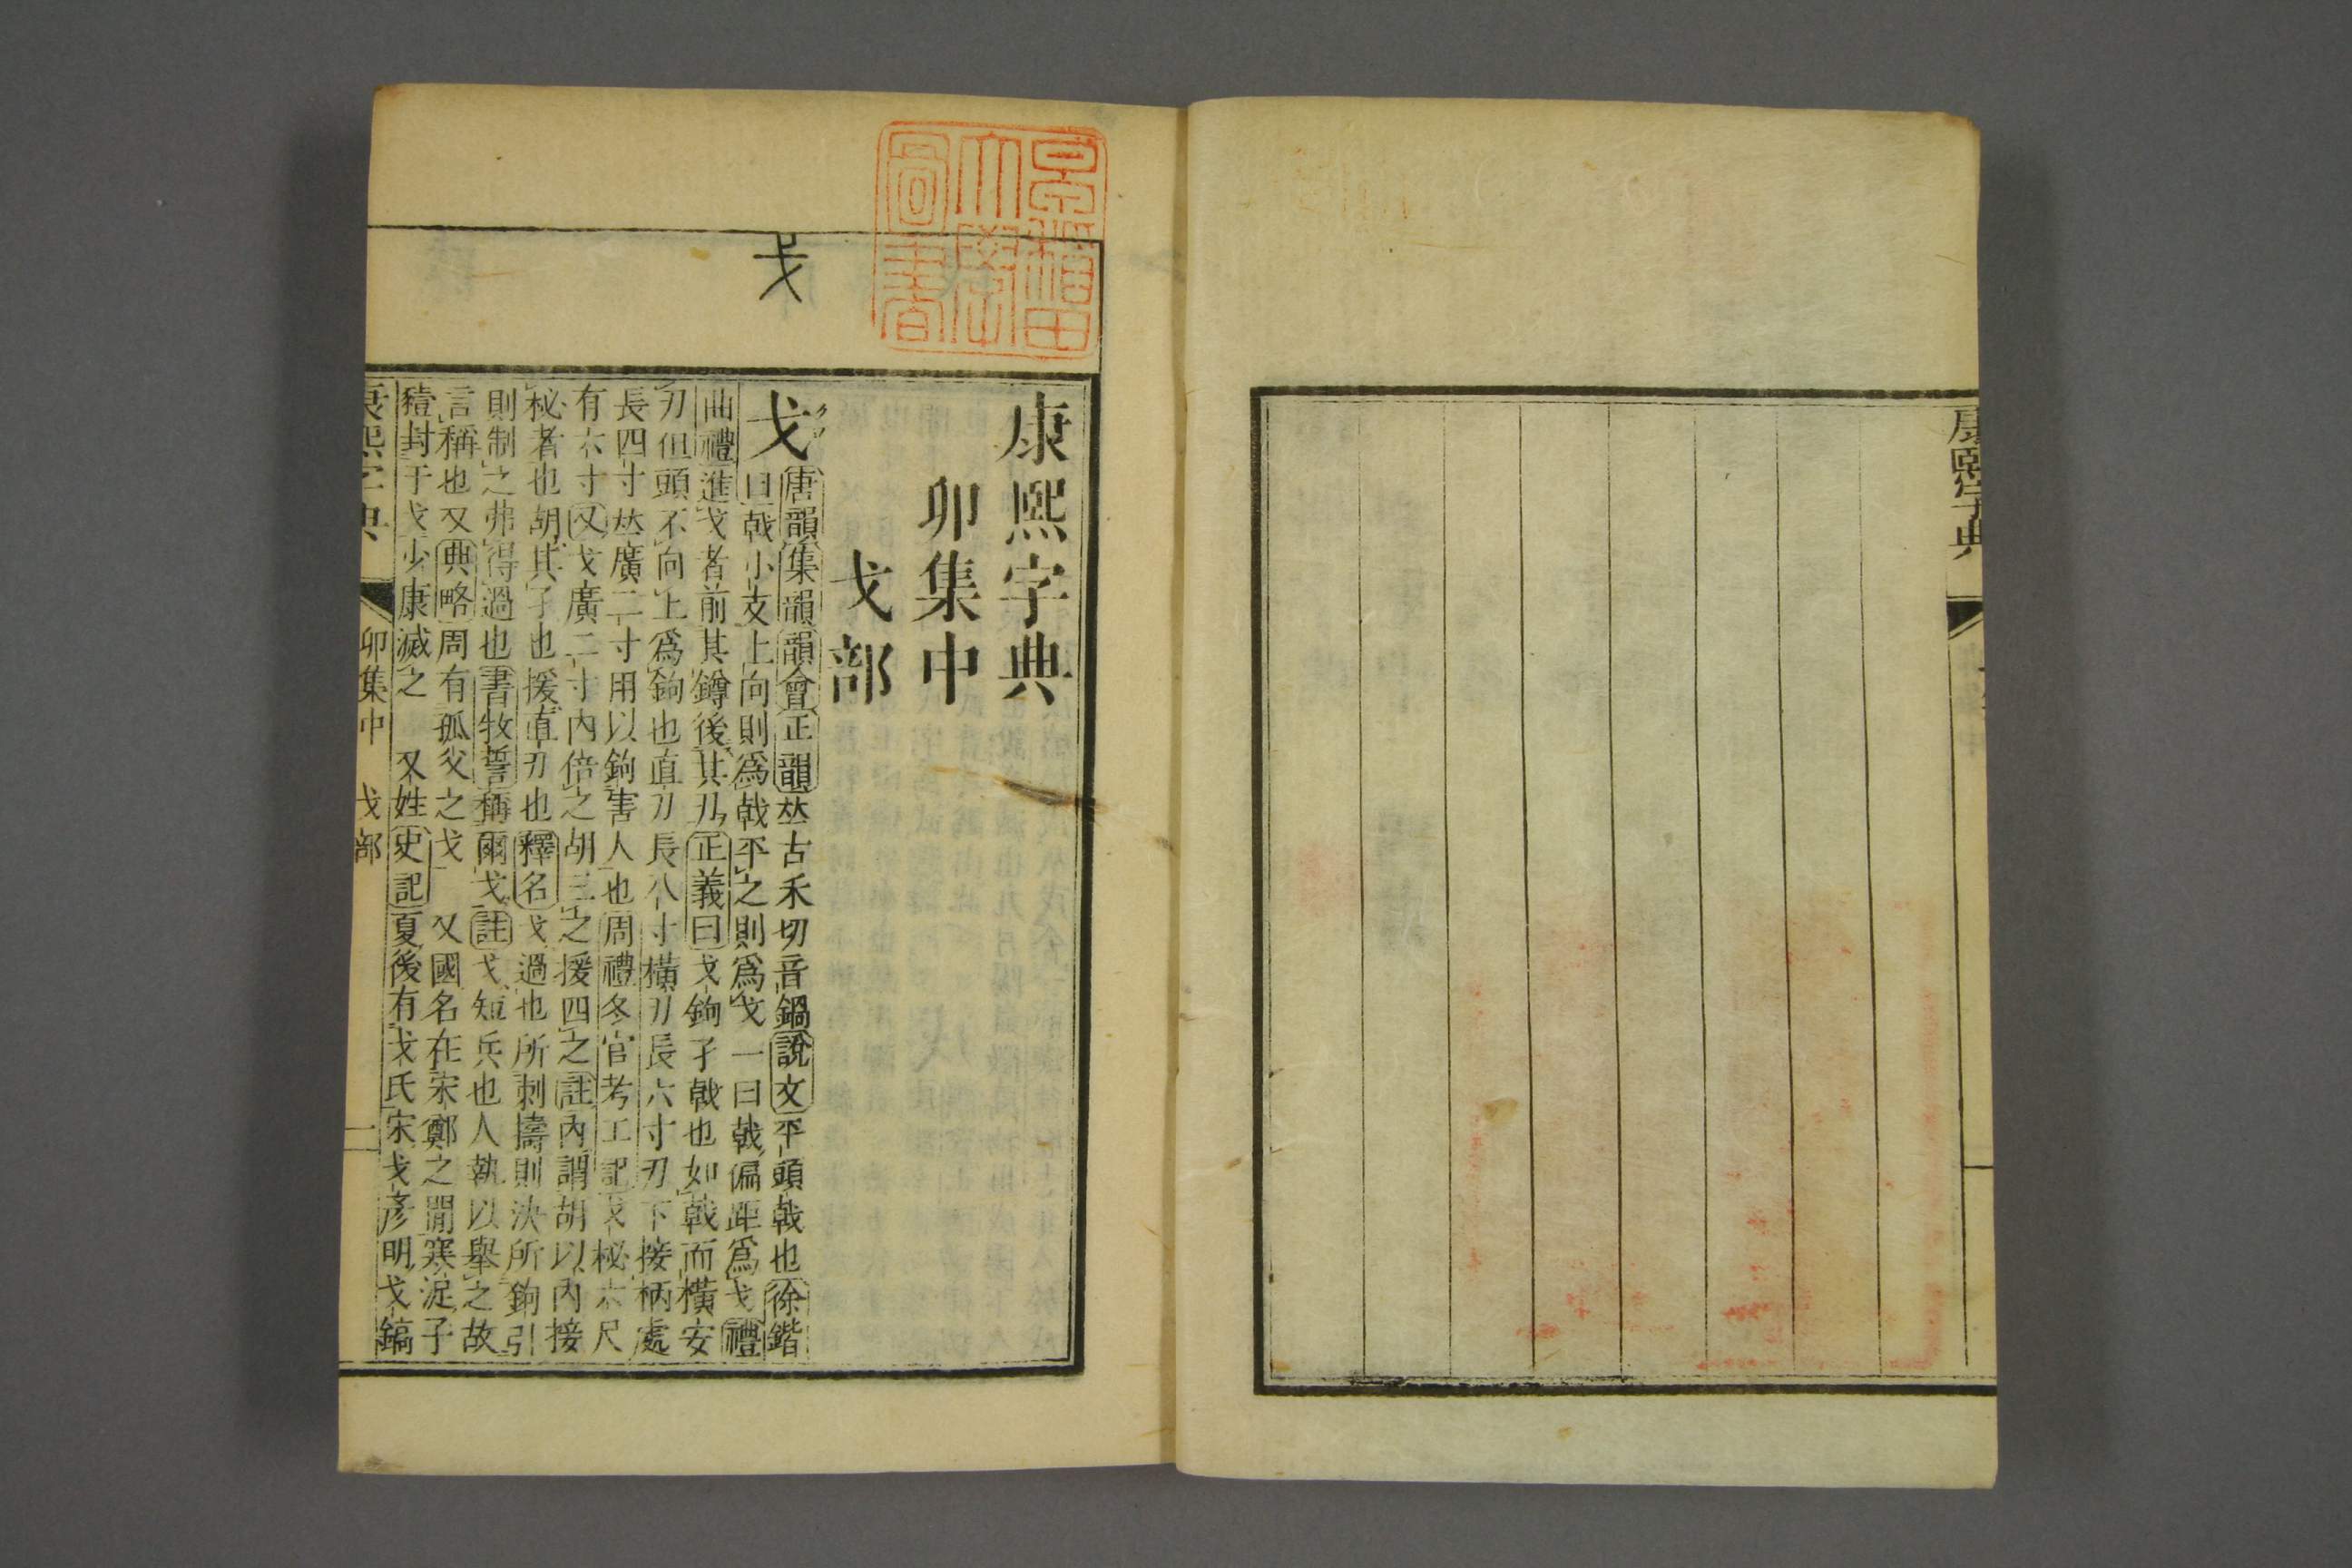 康熙字典
早稲田大學圖書
康熙字典
卯集中
戈部
戈
戈
唐韻集韻韻會正韻𠀤古禾切音鍋說文平頭戟也徐鍇
曰戟小支上向則爲戟平之則爲戈一曰戟偏距爲戈禮
曲禮進戈者前其鐏後其刃正義曰戈鉤孑戟也如戟而橫安
刃但頭不向上爲鉤也直刃長八寸橫刃長六寸刃下接柄處
長四寸𠀤廣二寸用以鉤害人也周禮冬官考工記戈柲六尺
有六寸又戈廣二寸內倍之胡三之援四之註內謂胡以內接
柲者也胡其孑也援直刃也釋名戈過也所刺擣則決所鉤引
則制之弗得過也書牧誓稱爾戈註戈短兵也人執以舉之故
言稱也又典略周有孤父之戈 又國名在宋鄭之閒寒浞子
豷封于戈少康滅之 又姓史記夏後有戈氏宋戈彥明戈鎬
康熙字典 卯集中 戈部 一